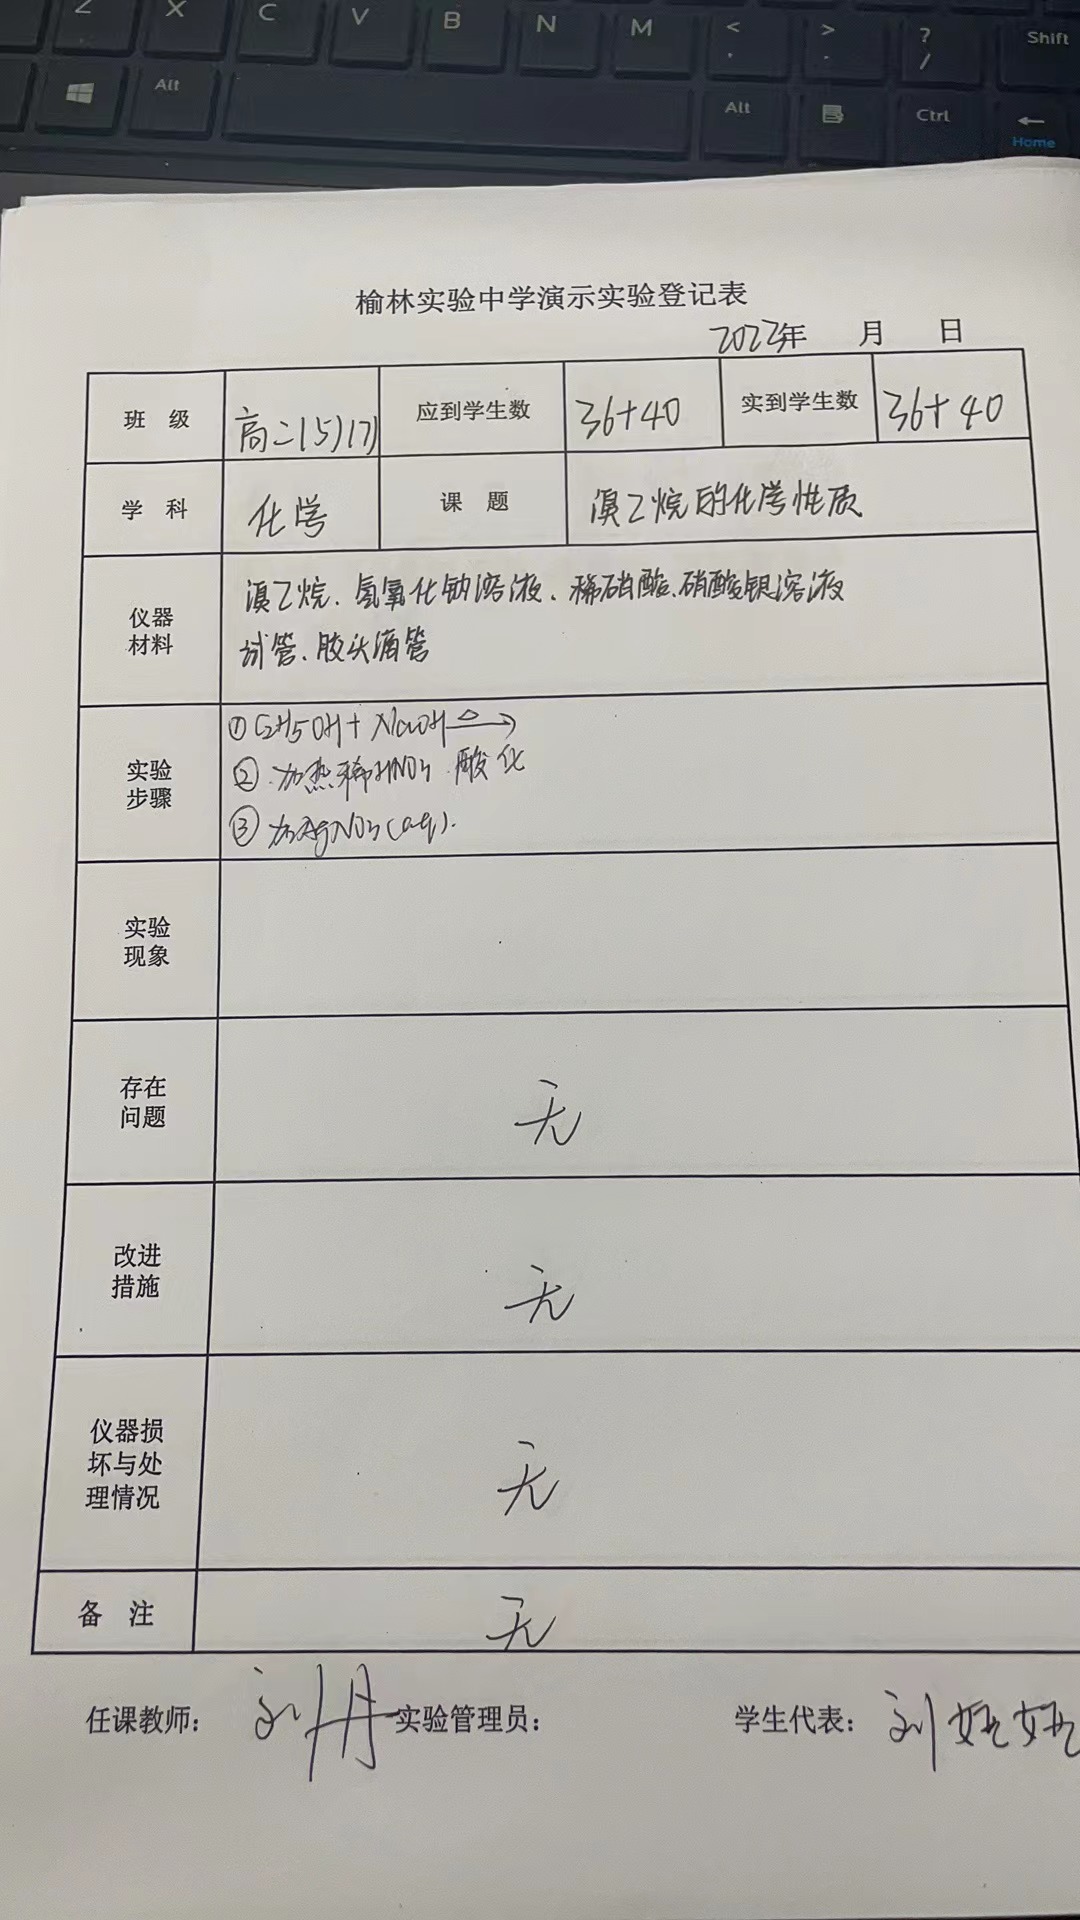 Z X C V B N M < , > . ? / Shift
Alt Alt Ctrl ← Home
榆林实验中学演示实验登记表
2022年 月 日
班 级 高二(5)(7) 应到学生数 36+40 实到学生数 36+40
学 科 化学 课 题 溴乙烷的化学性质
仪器材料 溴乙烷、氢氧化钠溶液、稀硝酸、硝酸银溶液
试管、胶头滴管
实验步骤 ① C2H5OH + NaOH △→
② 加热稀HNO3 酸化
③ 加AgNO3(aq).
实验现象
存在问题 无
改进措施 无
仪器损坏与处理情况 无
备 注 无
任课教师: 刘丹 实验管理员: 学生代表: 刘